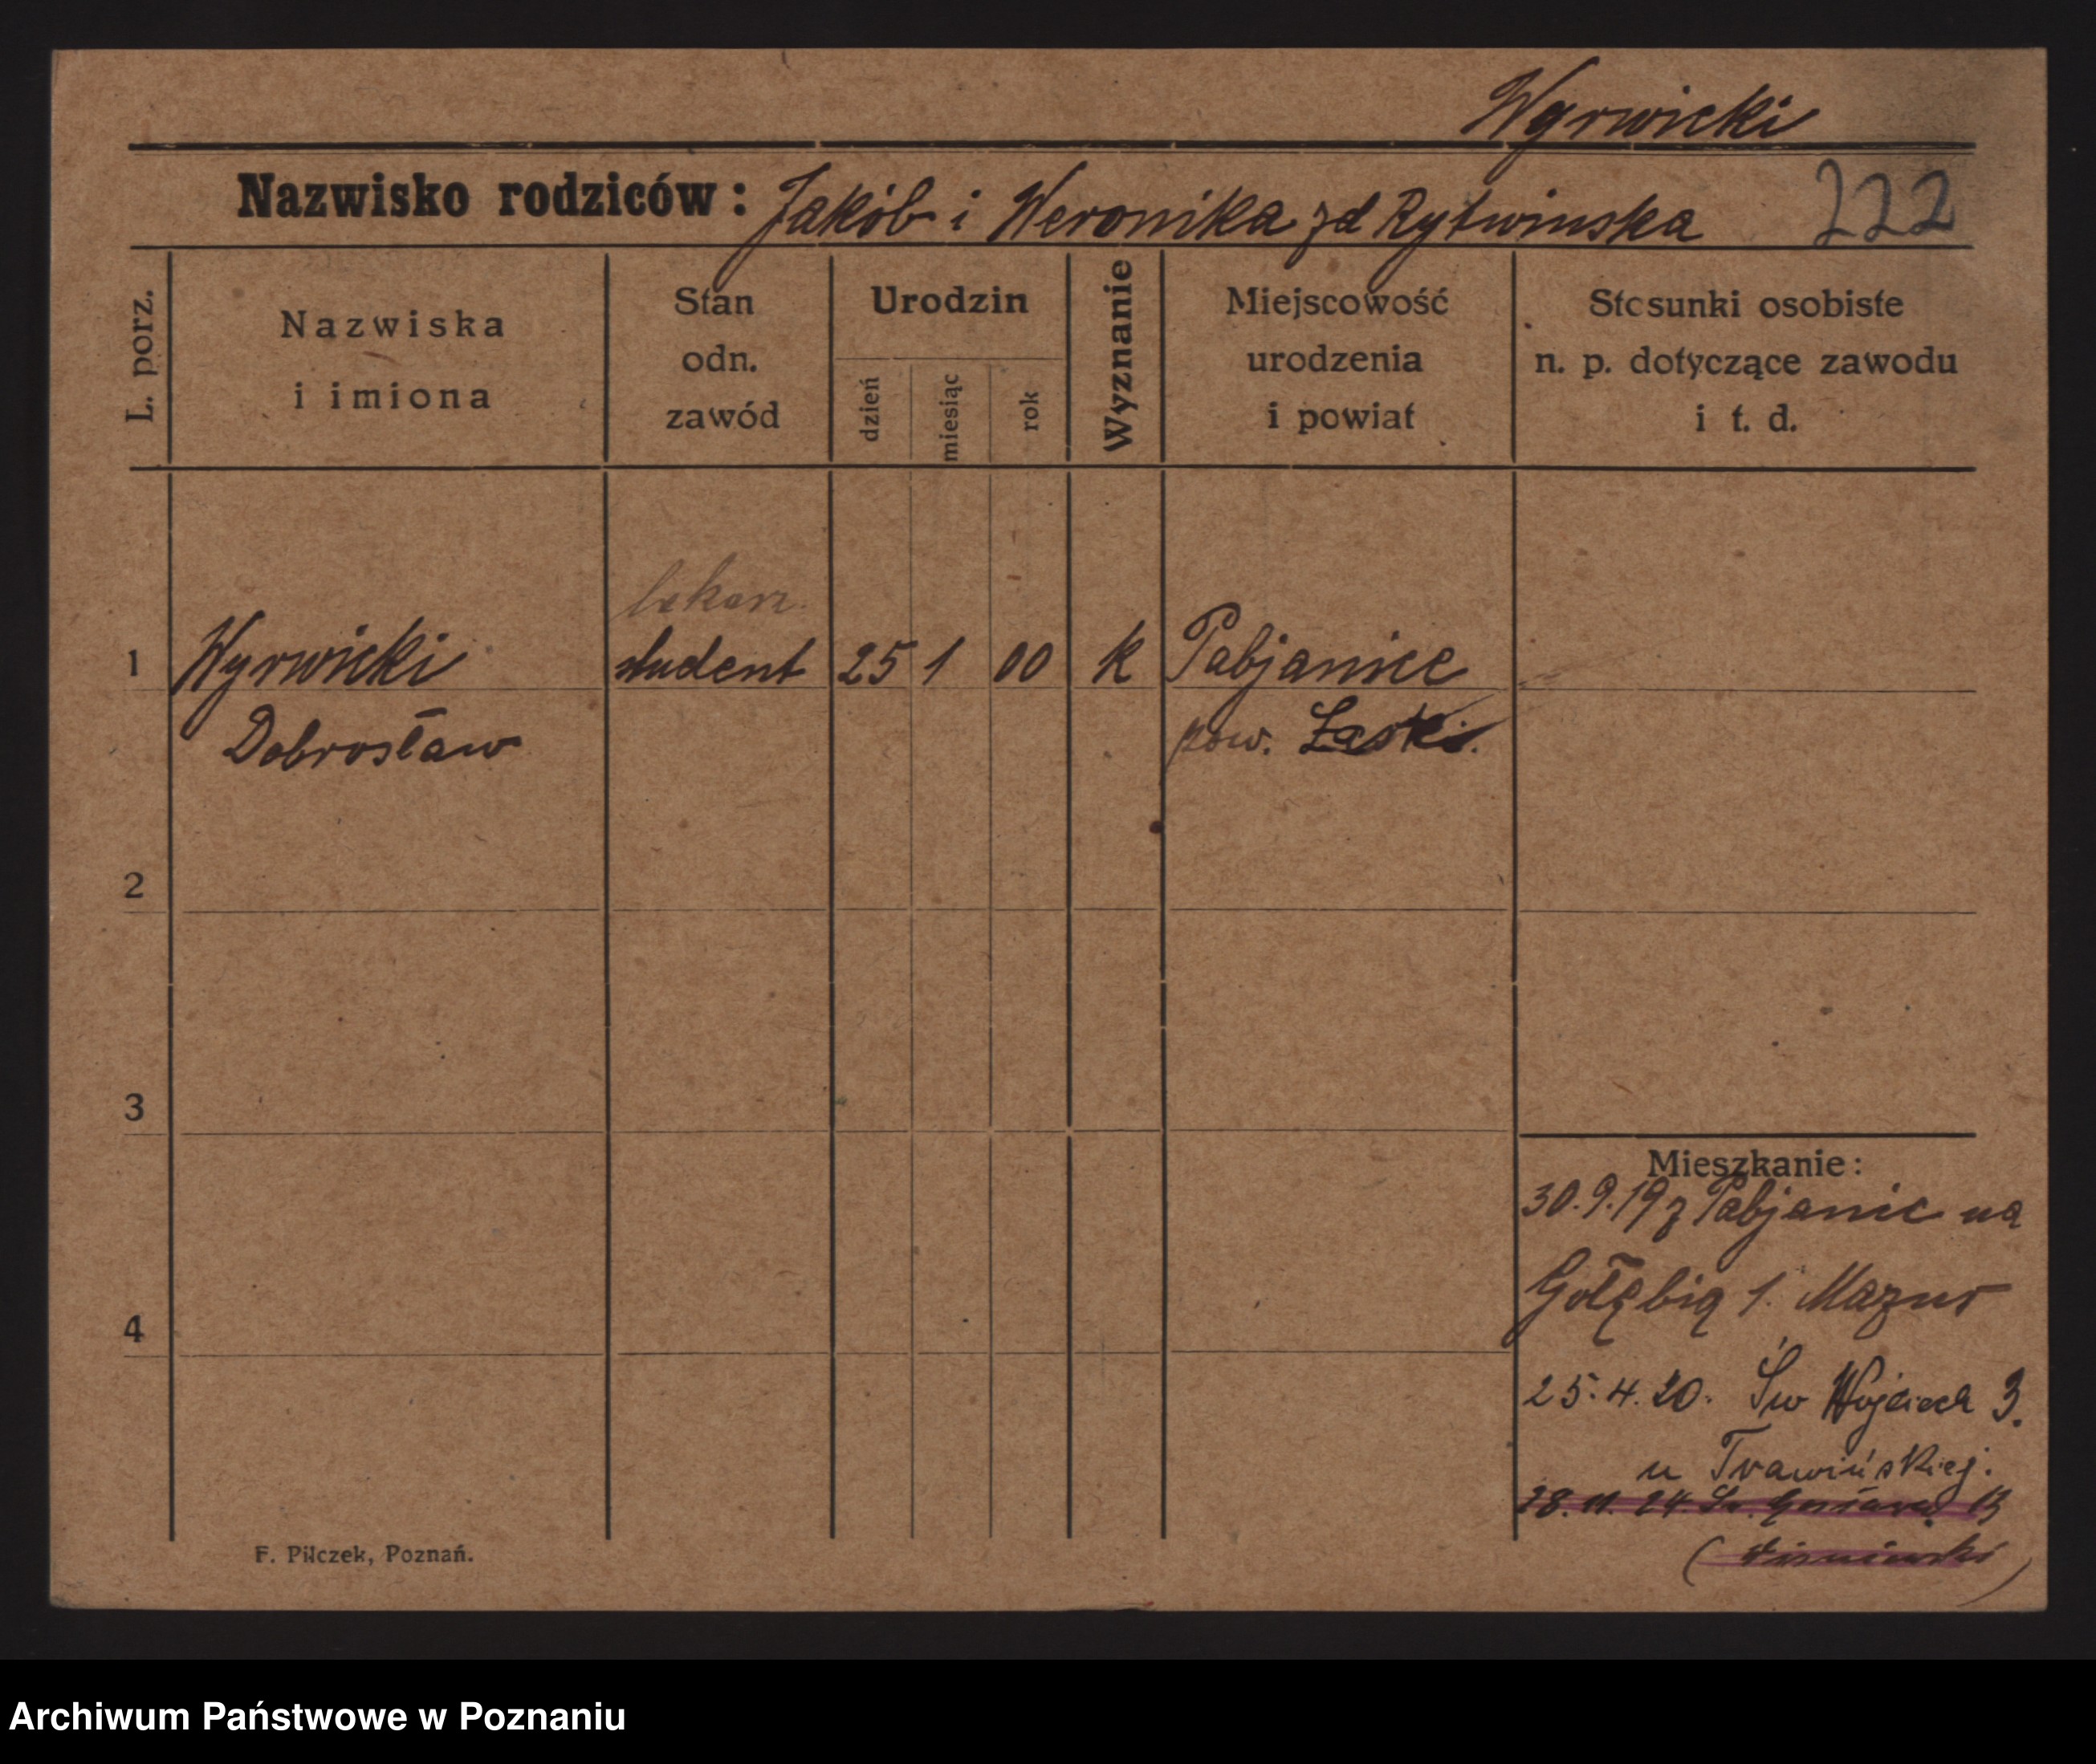 Wyrwicki
Nazwisko rodziców: Jakób i Weronika zd Rytwinska 222
L. porz.
Nazwiska i imiona
Stan odn. zawód
Urodzin
dzień
miesiąc
rok
Wyznanie
Miejscowość urodzenia i powiat
Stosunki osobiste n. p. dotyczące zawodu i t. d.
lekarz
1 Wyrwicki student 25 1 00 k Pabjanice
Dobrosław pow. Łaski.
2
3
Mieszkanie:
30.9.19 z Pabjanic na
Gołębią 1. Mazur
4
25.4.20. Św Wojciech 3.
u Trawińskiej.
28.11.24. 13
(Wisniewski)
F. Pilczek, Poznań.
Archiwum Państwowe w Poznaniu